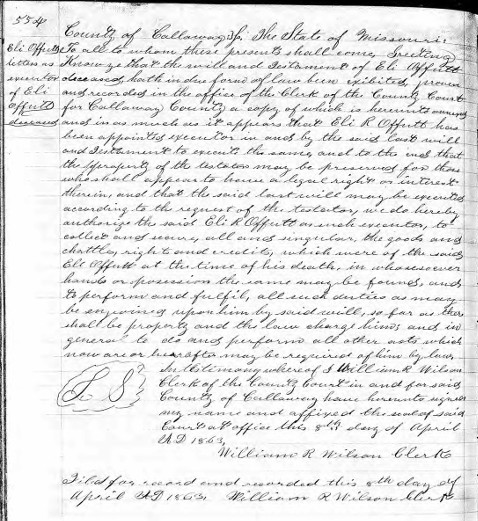 554
Eli Offutts
letters as
executor
of Eli
offutt
deceased
County of Callaway Ss. The State of Missouri:
To all to whom these presents shall come, Greeting
Know ye that the will and Testament of Eli Offutt
deceased, hath in due form of law been exibited, proven
and recorded in the office of the Clerk of the County Court
for Callaway County a copy of which is hereunto annexed
and in as much as it appears that Eli R Offutt has
been appointed executor in and by the said last will
and Testament to execute the same, and to the end that
the property of the testator may be preserved for those
who shall appear to have a legal right or interest
therein, and that the said last will may be executed
according to the request of the testator, we do hereby
authorize the said Eli R Offutt as such executor, to
collect and secure, all and singular, the goods and
chattles, right and credits, which were of the said
Eli Offutt at the time of his death, in whosesoever
hands or possession the same may be found, and
to perform and fulfil, all such duties as may
be enjoined upon him by said will, so far as there
shall be property and the law charge him, and in
general to do and perform all other acts which
now are or hereafter may be required of him by law
L S
In testimony whereof I William R Wilson
Clerk of the County Court in and for said
County of Callaway have hereunto signed
my name and affixed the seal of said
Court at office this 8th day of April
A D 1863,
William R Wilson Clerk
Filed for record and recorded this 8th day of
April AD 1863, William R Wilson Clerk